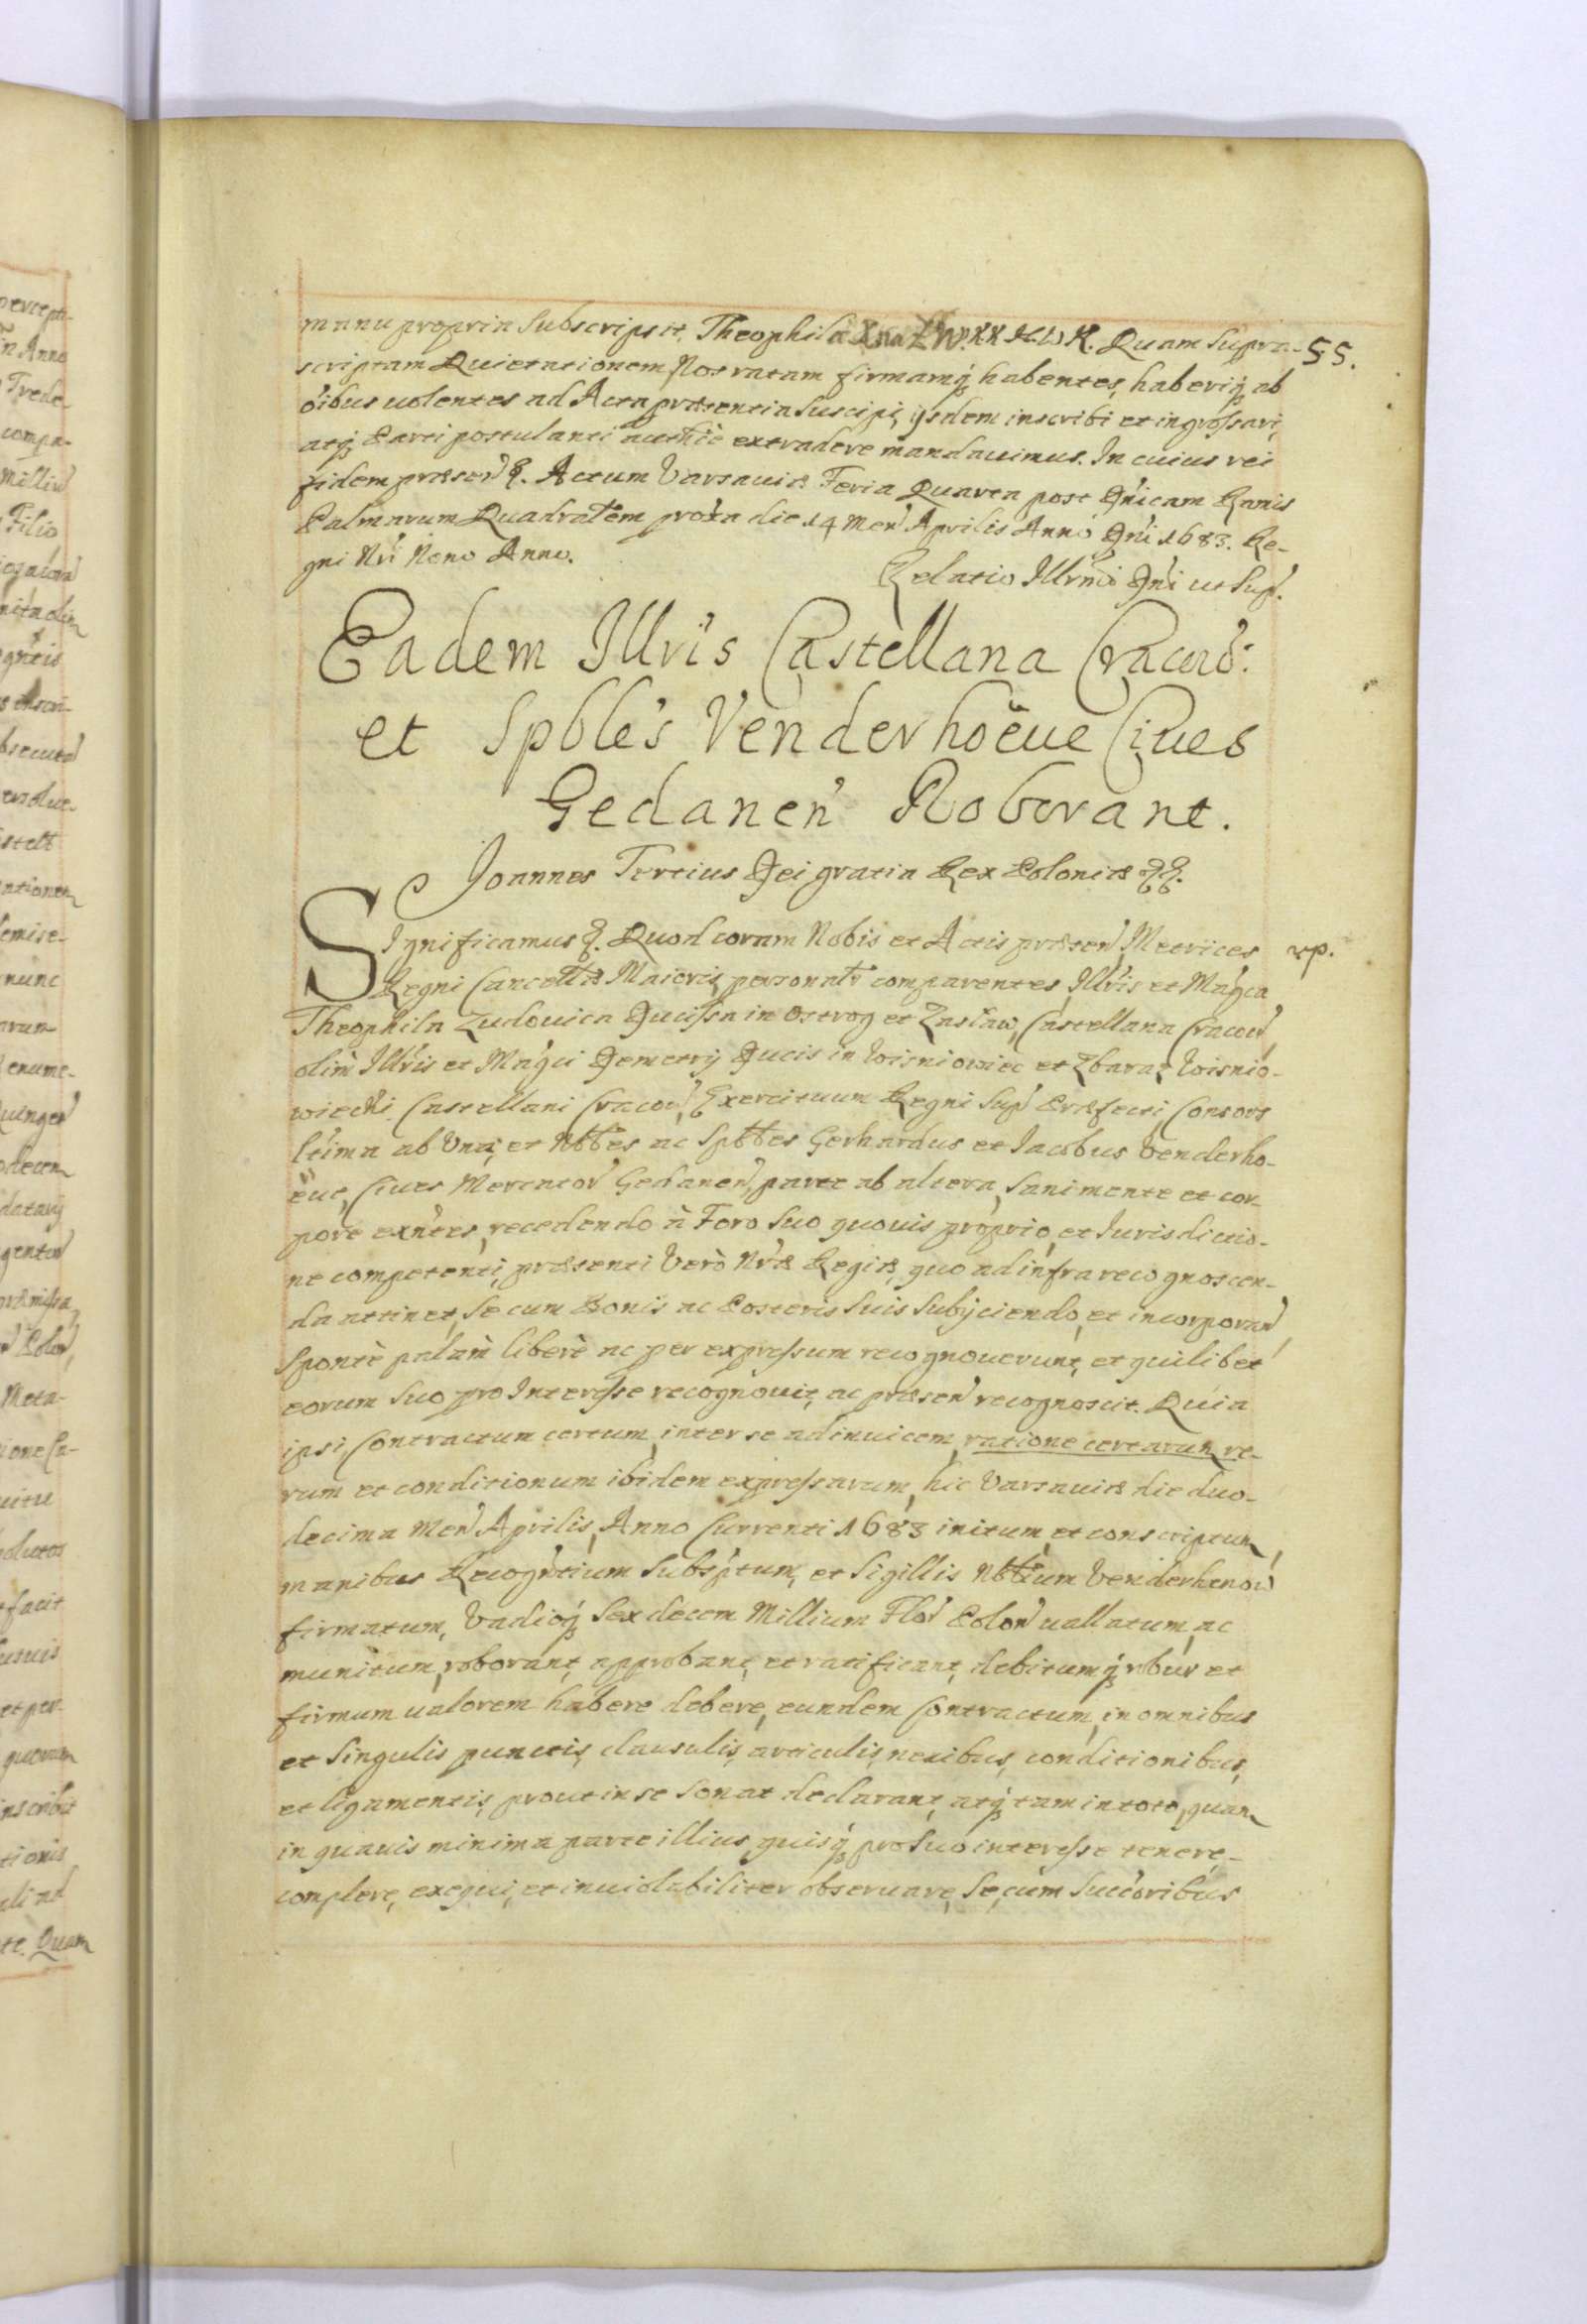 manu propria Subscripsit, Theophila Xna Z W. KK H. W K. Quam Supra-
55.
scriptam Quietationem Nos ratam firmamq3 habentes, haberiq3 ab
o͠ibus uolentes ad Acta præsentia Suscipi, ijsdem inscribi et ingrossari,
atq3 Parti postulanti auth͠ice extradere mandauimus. In cuius rei
fidem præsen̄ &. Actum Varsauiæ Feria Quarta post Dn͠icam Ramis
Palmarum Quadral͠em prox͠a die 14 Men̄ Aprilis Anno Dn͠i 1683. Re-
gni Nr͠i Nono Anno.
Relatio Illrm͠i Dn͠i ut Sup͠.
Eadem Illri's Castellana Cracou͠:
et Spble's Venderhoëue Ciues
Gedanen͠ Roborant.
Joannes Tertius Dei gratia Rex Poloniæ &&.
Significamus &. Quod coram Nobis et Actis præsen̄ Metrices
rp.
Regni Cancell͠æ Maioris, personal͠r comparentes, Illr͠is et Mag͠ca
Theophila Ludouica Ducissa in Ostrog et Zasław, Castellana Cracou͠,
olim Illr͠is et Mag͠ci Demetrij Ducis in Wisniowiec et Zbaraz Wisnio-
wiecki Castellani Cracou͠, Exercituum Regni Sup͠ Præfecti, Consors
l͠tima ab Una, et Nobl͠es ac Spbl͠es Gerhardus et Iacobus Venderho-
ëue, Ciues Mercator͠ Gedanen͠, parte ab altera, Sani mente et cor-
pore exn͠tes, recedendo à Foro Suo quouis proprio, et Iurisdictio-
ne competenti, præsenti Verò Nr͠æ Regiæ, quo ad infra recognoscen-
da attinet, Se cum Bonis ac Posteris Suis Subijciendo, et incorporan͠,
Sponte palàm liberè ac per expressum recognouerunt, et quilibet
eorum Suo pro Interesse recognouit, ac præsen͠ recognoscit. Quia
ipsi, Contractum certum, inter se adinuicem, ratione certarum re-
rum et conditionum ibidem expressarum, hic Varsauiæ die duo-
decima Men͠ Aprilis, Anno Currenti 1683 initum, et conscriptum,
manibus Recogn͠tium Subsp͠tum, et Sigillis Nobl͠ium Venderhenow
firmatum, Vadioq3 Sexdecem Millium Flo͠r Polon͠ uallatum, ac
munitum, roborant, approbant, et ratificant, debitumq3 robur et
firmum ualorem habere debere, eundem Contractum, in omnibus
et Singulis punctis, clausulis, articulis, nexibus, conditionibus,
et ligamentis, prout in se Sonat declarant, atq3 tam in toto, quam
in quauis minima parte illius, quisq3 pro Suo interesse tenere,-
complere, exequi, et inuiolabiliter obseruare, Se, cum Succ͠oribus